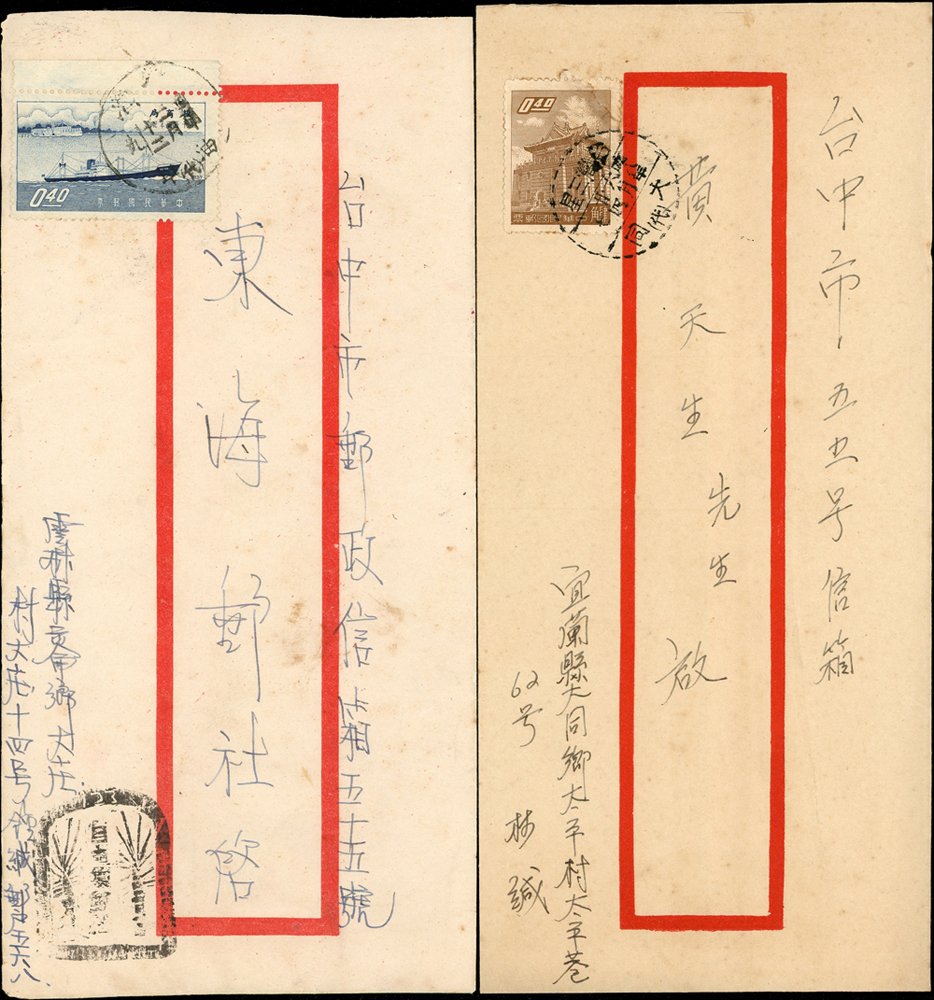 台中市郵政信箱五十五號
東海郵社啓
雲林縣 鄉大庄
村大庄十四号
0.40
中華民國郵票
台中市五五号信箱
黄天生先生啟
宜蘭縣大同鄉太平村太平巷
62号 林緘
0.40
大同